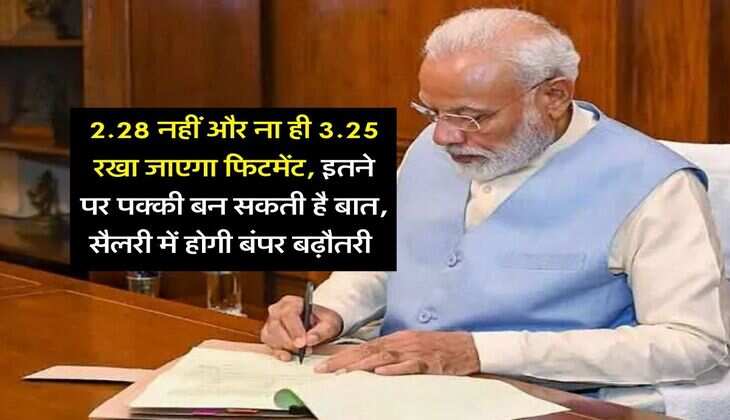 2.28 नहीं और ना ही 3.25
रखा जाएगा फिटमेंट, इतने
पर पक्की बन सकती है बात,
सैलरी में होगी बंपर बढ़ौतरी